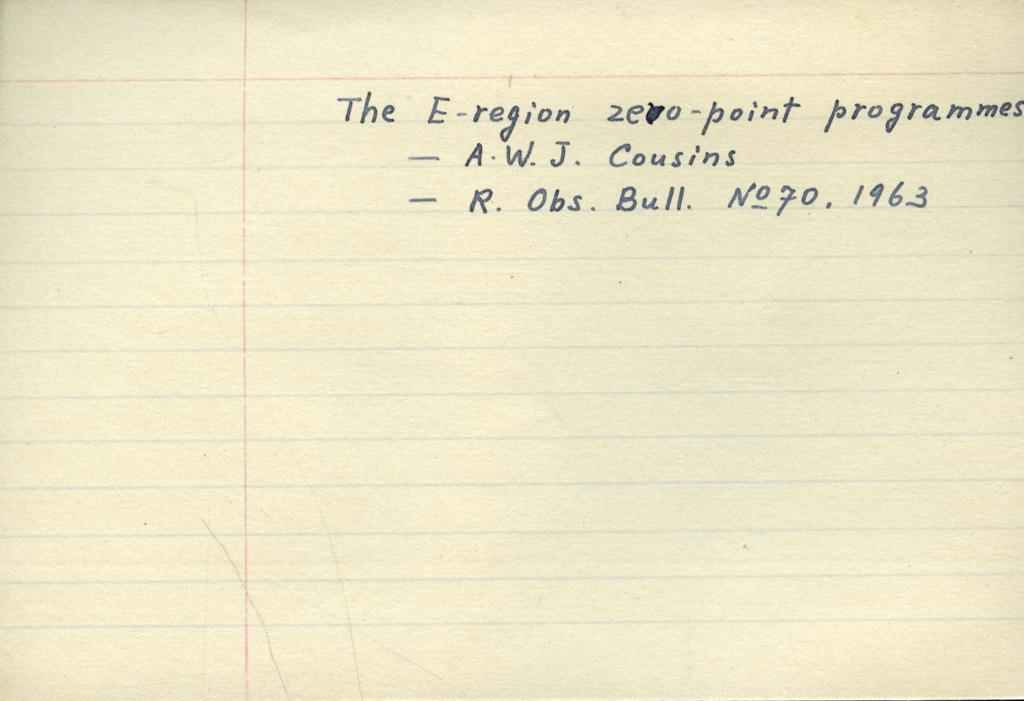 The E-region zero-point programmes
— A.W.J. Cousins
— R. Obs. Bull. Nº 70. 1963